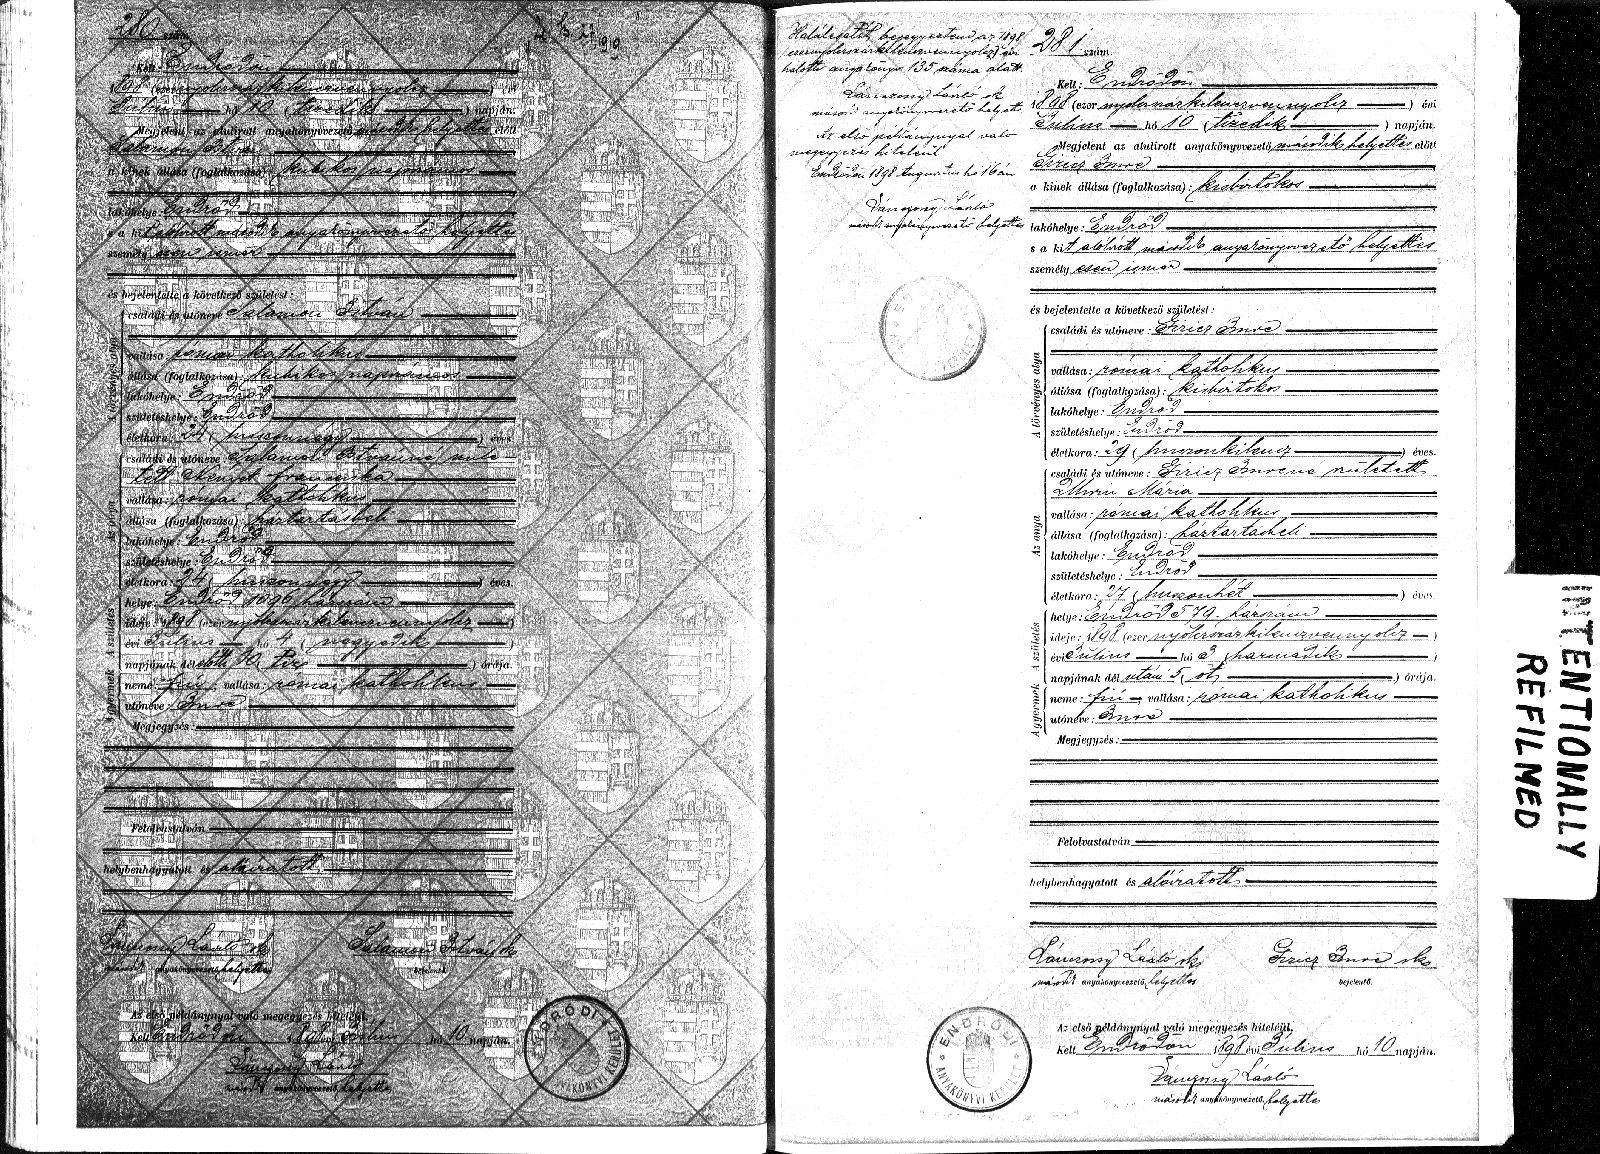 280 szám.
Kelt: Endrődön
1898 (ezer nyolczszázkilenczvennyolcz) évi
Julius hó 10 (tizedik) napján.
Megjelent az alulírott anyakönyvvezető második helyettes előtt
Salamon István
a kinek állása (foglalkozása): kubikos napszámos
lakóhelye: Endrőd
s a kit alólírott második anyakönyvvezető helyettes
személyesen ismer
és bejelentette a következő születést:
családi és utóneve: Salamon István
vallása: római katholikus
állása (foglalkozása): kubikos napszámos
lakóhelye: Endrőd
születéshelye: Endrőd
életkora: 24 (huszonnégy) éves.
családi és utóneve: Salamon Istvánné szüle
tett francziska
vallása: római katholikus
állása (foglalkozása): háztartásbeli
lakóhelye: Endrőd
születéshelye: Endrőd
életkora: 24 (huszonnégy) éves.
helye: Endrőd 1696 házszám
ideje: 1898 (ezer nyolczszázkilenczvennyolcz)
évi Julius hó 4 (negyedik)
napjának dél előtti 10 tíz órája.
neme: fiú, vallása: római katholikus
utóneve: Imre
Megjegyzés:
Felolvastatván
helybenhagyatott és aláíratott
László sk Salamon István sk
második anyakönyvvezető helyettes bejelentő.
Az első példánynyal való megegyezés hiteléül,
Kelt Endrődön 1898 évi Julius hó 10 napján.
László
második anyakönyvvezető helyettes
ENDRŐDI ANYAKÖNYVI KERÜLET
bejegyeztetett az 1898
ezernyolczszázkilenczvennyolcz évi
halotti anyakönyv 135 száma alatt.
László sk
második anyakönyvvezető helyettes
Az első példánynyal való
megegyezés hiteléül
Endrődön 1898 Augusztus hó 16 án
László
második anyakönyvvezető helyettes
281 szám.
Kelt: Endrődön
1898 (ezer nyolczszázkilenczvennyolcz) évi
Julius hó 10 (tizedik) napján.
Megjelent az alulírott anyakönyvvezető második helyettes előtt
Giricz Imre
a kinek állása (foglalkozása): kisbirtokos
lakóhelye: Endrőd
s a kit alólírott második anyakönyvvezető helyettes
személyesen ismer
és bejelentette a következő születést:
A törvényes atya
családi és utóneve: Giricz Imre
vallása: római katholikus
állása (foglalkozása): kisbirtokos
lakóhelye: Endrőd
születéshelye: Endrőd
életkora: 29 (huszonkilencz) éves.
Az anya
családi és utóneve: Giricz Imréné született
Mária
vallása: római katholikus
állása (foglalkozása): háztartásbeli
lakóhelye: Endrőd
születéshelye: Endrőd
életkora: 27 (huszonhét) éves.
A születés
helye: Endrőd 579. házszám
ideje: 1898 (ezer nyolczszázkilenczvennyolcz)
évi Julius hó 3 (harmadik)
napjának dél utáni 5, öt órája.
A gyermek
neme: fiú, vallása: római katholikus
utóneve: Imre
Megjegyzés:
Felolvastatván
helybenhagyatott és aláíratott
László sk Giricz Imre sk
második anyakönyvvezető helyettes bejelentő.
Az első példánynyal való megegyezés hiteléül,
Kelt Endrődön 1898 évi Julius hó 10 napján.
László
második anyakönyvvezető helyettes
ENDRŐDI ANYAKÖNYVI KERÜLET
INTENTIONALLY
REFILMED